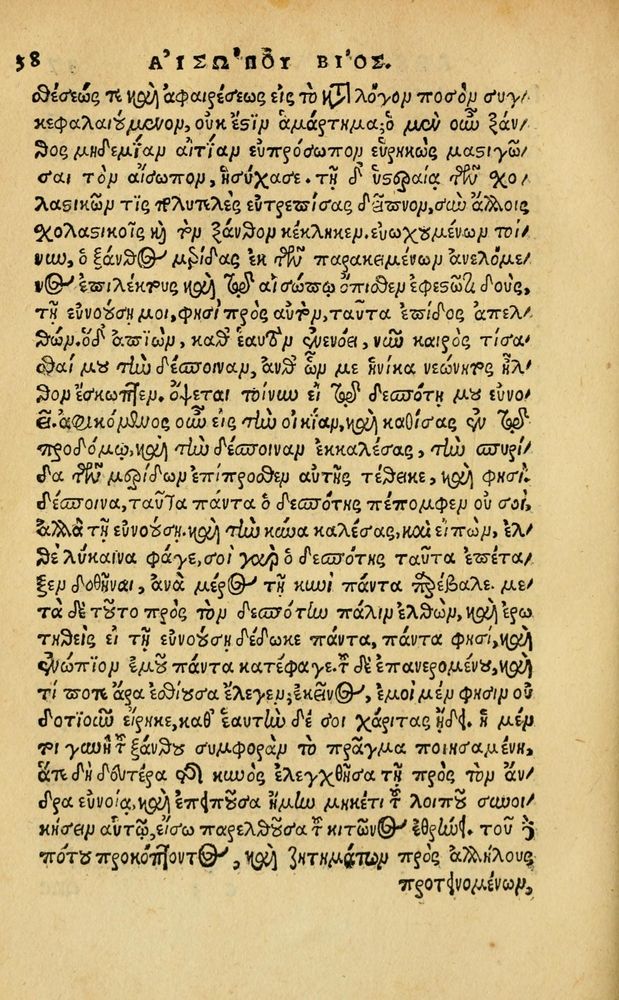 58 ΑἸΣΩ'ΠΟΥ ΒΙ'ΟΣ.
θέσεώς τε καὶ ἀφαιρέσεως εἰς τὸ κατὰ λόγον ποσὸν συγ-
κεφαλαιούμενον, οὐκ ἔστιν ἁμάρτημα; ὁ μὲν οὖν ξάν-
θος μηδεμίαν αἰτίαν εὐπρόσωπον εὑρηκὼς μαστιγῶ-
σαι τὸν αἴσωπον, ἡσύχασε. τῇ δ' ὑστεραίᾳ τῶν σχο-
λαστικῶν τὶς πολυτελὲς εὐτρεπίσας δεῖπνον, σὺν ἄλλοις
σχολαστικοῖς καὶ τὸν ξάνθον κέκληκεν. εὐωχουμένων τοί-
νυν, ὁ ξάνθος μερίδας ἐκ τῶν παρακειμένων ἀνελόμε-
νος ἐπιλέκτους καὶ τῷ αἰσώπῳ ὄπισθεν ἐφεστῶτι δοὺς,
τῇ εὐνούσῃ μοι, φησὶ πρὸς αὐτὸν, ταῦτα ἐπίδος ἀπελ-
θών. ὁ δ' ἀπιὼν, καθ' ἑαυτὸν ἐνενόει, νῦν καιρὸς τίσα-
σθαί μου τὴν δέσποιναν, ἀνθ' ὧν με ἡνίκα νεώνητος ἦλ-
θον ἔσκωπτεν. ὄψεται τοίνυν εἰ τῷ δεσπότῃ μου εὐνο-
εῖ. ἀφικόμενος οὖν εἰς τὴν οἰκίαν, καὶ καθίσας ἐν τῷ
προδόμῳ, καὶ τὴν δέσποιναν ἐκκαλέσας, τὴν σπυρί-
δα τῶν μερίδων ἐπίπροσθεν αὐτῆς τέθεικε, καὶ φησί.
δέσποινα, ταῦτα πάντα ὁ δεσπότης πέπομφεν οὐ σοὶ,
ἀλλὰ τῇ εὐνούσῃ. καὶ τὴν κύνα καλέσας, καὶ εἰπὼν, ἐλ-
θὲ λύκαινα φάγε, σοὶ γὰρ ὁ δεσπότης ταῦτα ἐπέτα-
ξεν δοθῆναι, ἀνὰ μέρος τῇ κυνὶ πάντα προέβαλε. με-
τὰ δὲ τοῦτο πρὸς τὸν δεσπότην πάλιν ἐλθὼν, καὶ ἐρω
τηθεὶς εἰ τῇ εὐνούσῃ δέδωκε πάντα, πάντα φησὶ, καὶ
ἐνώπιον ἐμοῦ πάντα κατέφαγε. τοῦ δὲ ἐπανερομένου, καὶ
τί ποτε ἄρα ἐσθίουσα ἔλεγεν; ἐκεῖνος, ἐμοὶ μέν φησιν οὐ
δοτιοῦν εἴρηκε, καθ' ἑαυτὴν δέ σοι χάριτας ᾔδει. ἡ μέν
τοι γυνὴ τοῦ ξάνθου συμφορὰν τὸ πρᾶγμα ποιησαμένη,
ἅτε δὴ δευτέρα τῆς κυνὸς ἐλεγχθεῖσα τῇ πρὸς τὸν ἄν-
δρα εὐνοίᾳ, καὶ ἐπειποῦσα ἦ μὴν μηκέτι τοῦ λοιποῦ συνοι-
κήσειν αὐτῷ, εἴσω παρελθοῦσα τοῦ κοιτῶνος ἐθρήνει. τοῦ δὲ
πότου προκόπτοντος, καὶ ζητημάτων πρὸς ἀλλήλους
προτεινομένων,